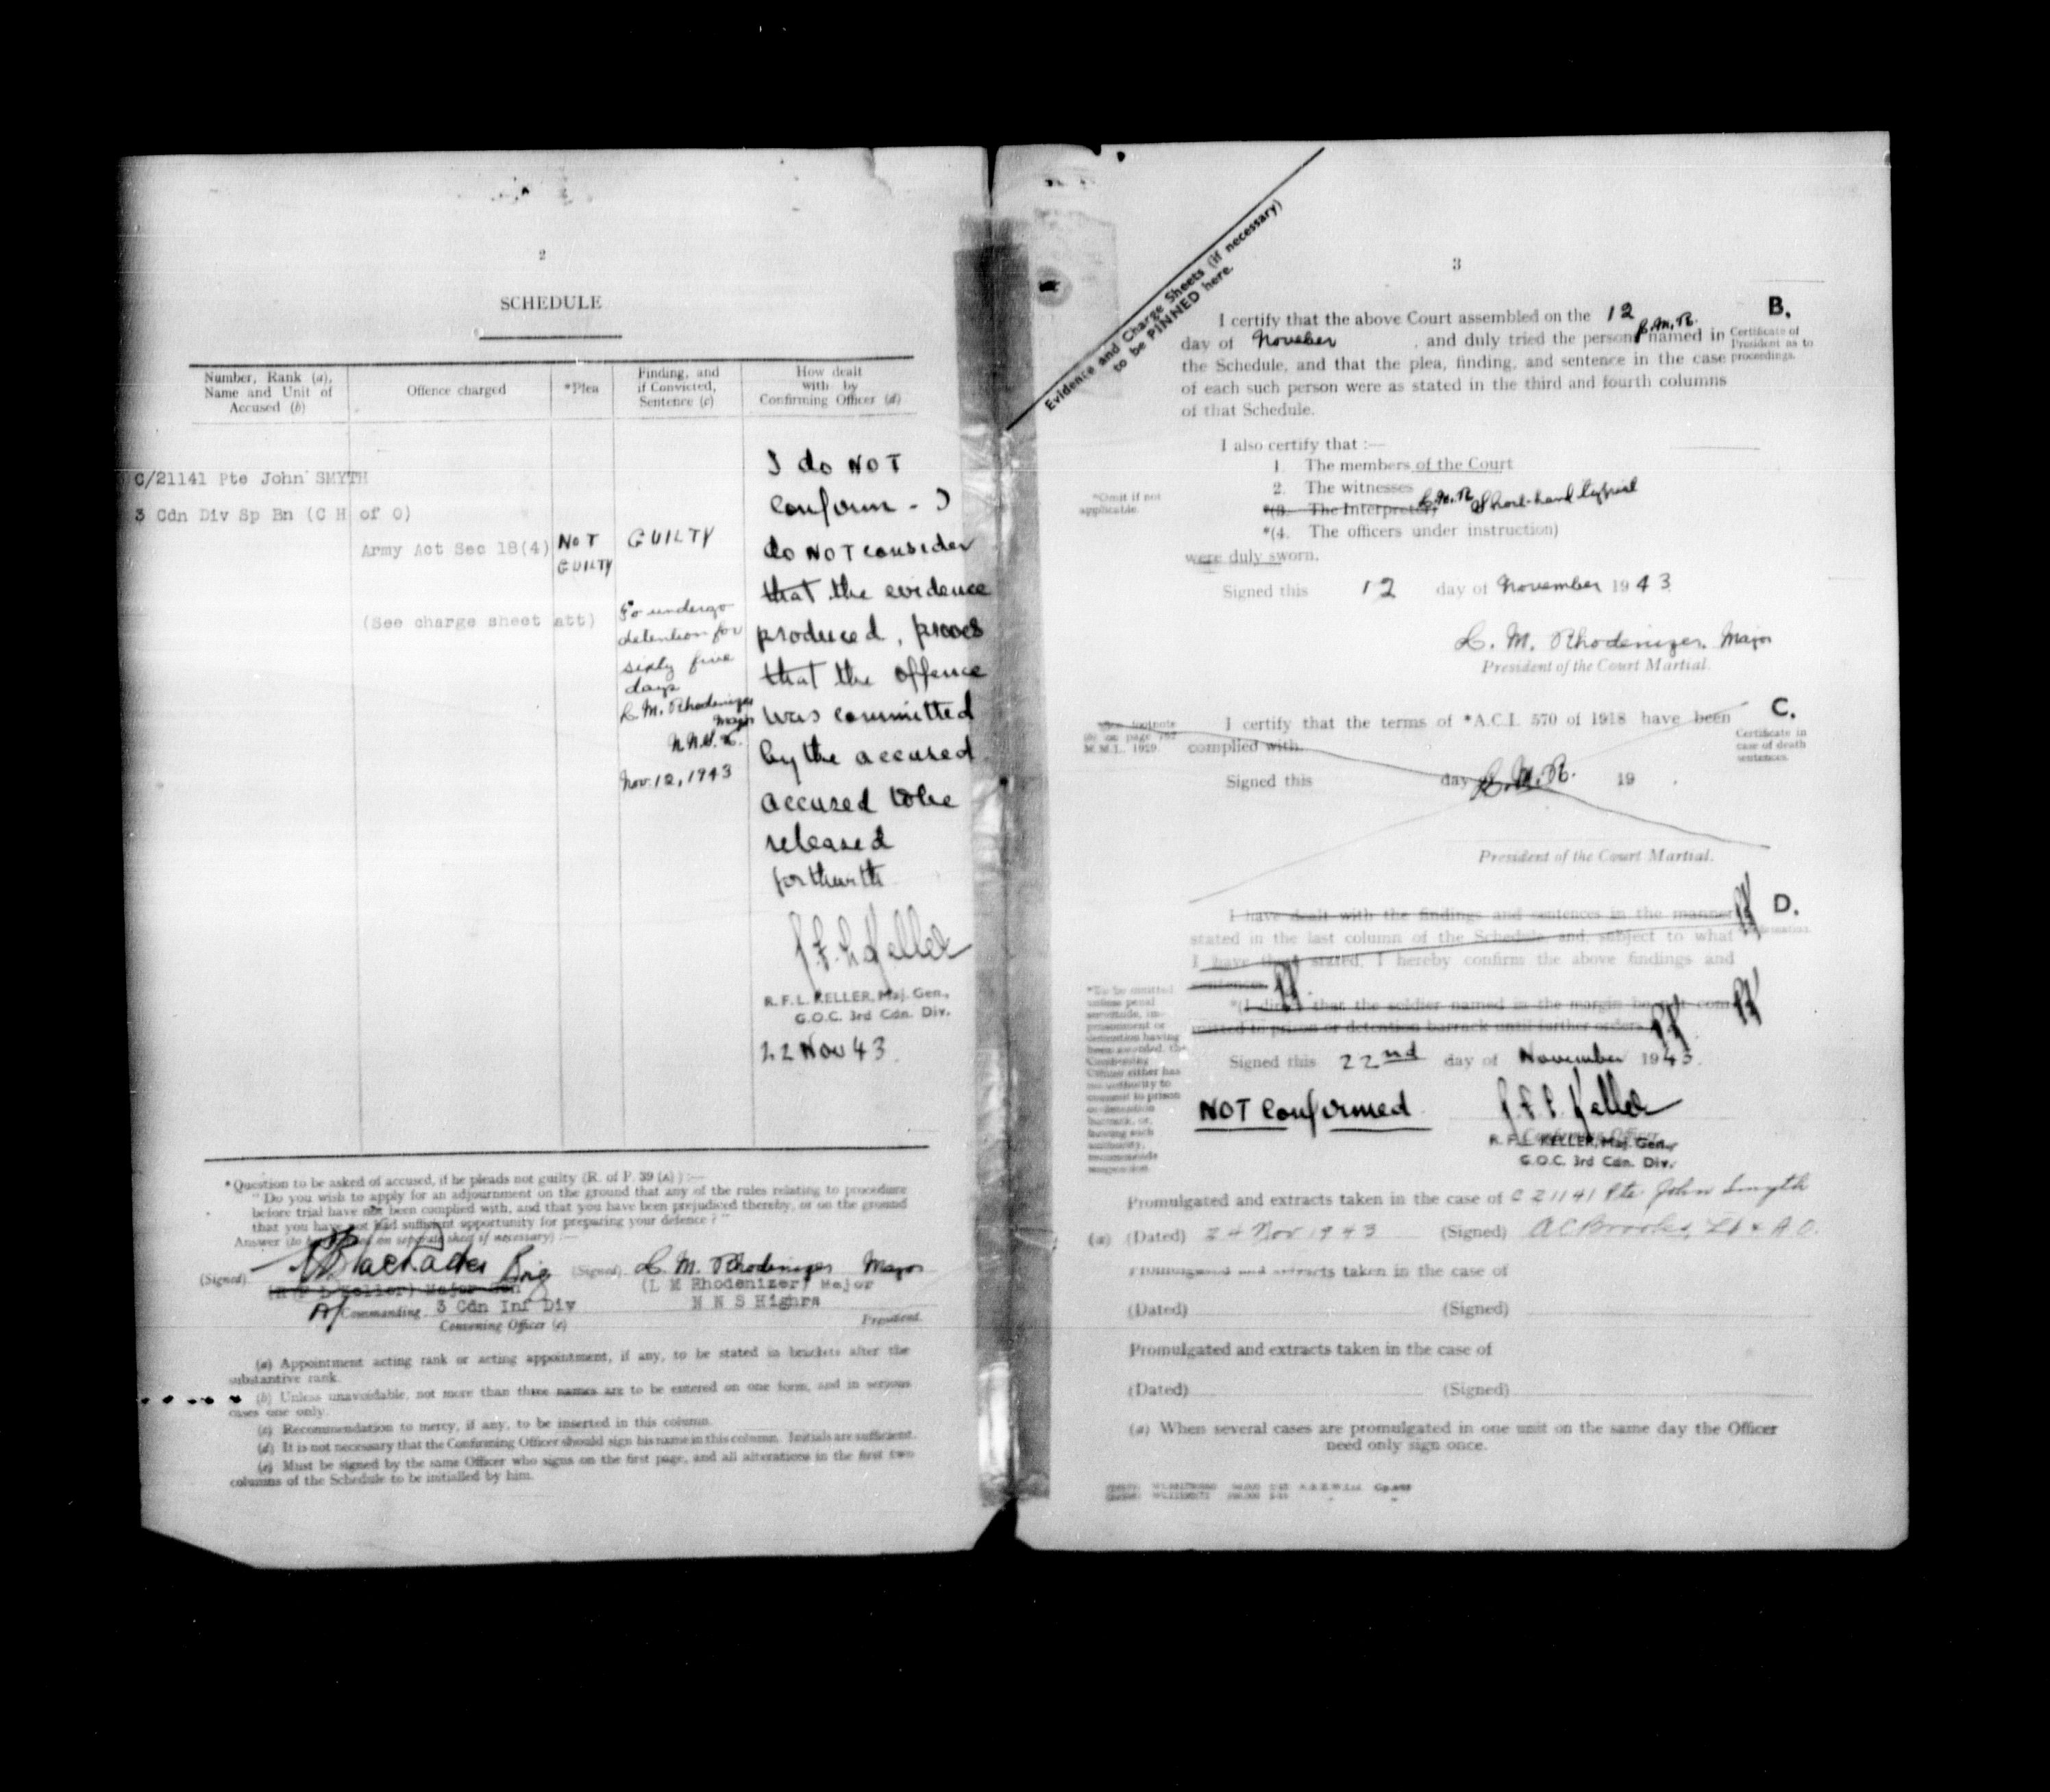 2
SCHEDULE
Number, Rank (a),
Name and Unit of
Accused (b)
Offence charged
*Plea
Finding, and
if Convicted,
Sentence (c)
How dealt
with by
Confirming Officer (d)
C/21141 Pte John SMYTH
3 Cdn Div Sp Bn (C H of O)
Army Act Sec 18(4)
(See charge sheet att)
NOT
GUILTY
GUILTY
To undergo
detention for
sixty five
days
L. M. Rhodenizer
Major
N.N.S.H.
Nov. 12, 1943
I do NOT
confirm - I
do NOT consider
that the evidence
produced, proves
that the offence
was committed
by the accused
accused to be
released
forthwith
R.F.L. Keller
R. F. L. KELLER, Maj. Gen.,
G.O.C. 3rd Cdn. Div.
22 Nov 43.
*Question to be asked of accused, if he pleads not guilty (R. of P. 39 (A)) :—
"Do you wish to apply for an adjournment on the ground that any of the rules relating to procedure
before trial have not been complied with, and that you have been prejudiced thereby, or on the ground
that you have not had sufficient opportunity for preparing your defence?"
Answer (to be on separate sheet if necessary) :—
(Signed) Brig
(R F L Keller) Major Gen
A/ Commanding 3 Cdn Inf Div
Convening Officer (e)
(Signed) L. M. Rhodenizer Major
(L M Rhodenizer) Major
N N S Highrs
President.
(a) Appointment acting rank or acting appointment, if any, to be stated in brackets after the
substantive rank.
(b) Unless unavoidable, not more than three names are to be entered on one form, and in serious
cases one only.
(c) Recommendation to mercy, if any, to be inserted in this column.
(d) It is not necessary that the Confirming Officer should sign his name in this column. Initials are sufficient.
(e) Must be signed by the same Officer who signs on the first page, and all alterations in the first two
columns of the Schedule to be initialled by him.
Evidence and Charge Sheets (if necessary)
to be PINNED here.
3
B.
Certificate of
President as to
proceedings.
I certify that the above Court assembled on the 12
day of Noveber , and duly tried the person L.M.R. named in
the Schedule, and that the plea, finding, and sentence in the case
of each such person were as stated in the third and fourth columns
of that Schedule.
I also certify that :—
1. The members of the Court
2. The witnesses
*Omit if not
applicable.
*(3. The Interpreter) L.M.R. Short-hand typist
*(4. The officers under instruction)
were duly sworn.
Signed this 12 day of November 1943
L. M. Rhodenizer, Major
President of the Court Martial.
C.
Certificate in
case of death
sentences.
footnote
on page 767
M.M.L. 1929.
I certify that the terms of *A.C.I. 570 of 1918 have been
complied with.
Signed this day L.M.R. 19 .
President of the Court Martial.
D.
I have dealt with the findings and sentences in the manner
stated in the last column of the Schedule, and, subject to what
I have there stated, I hereby confirm the above findings and
sentences.
*(I direct that the soldier named in the margin be not com-
mitted to prison or detention barrack until further orders.
*To be omitted
unless penal
servitude, im-
prisonment or
detention having
been awarded, the
Confirming
Officer either has
no authority to
commit to prison
or detention
barrack, or,
having such
authority,
recommends
suspension.
Signed this 22nd day of November 1943.
NOT Confirmed
R.F.L. Keller
Confirming Officer
R. F. L. KELLER, Maj. Gen.,
G.O.C. 3rd Cdn. Div.
Promulgated and extracts taken in the case of C 21141 Pte John Smyth
(a) (Dated) 24 Nov 1943 (Signed) A C Brooks, Lt & A.O.
Promulgated and extracts taken in the case of
(Dated) (Signed)
Promulgated and extracts taken in the case of
(Dated) (Signed)
(a) When several cases are promulgated in one unit on the same day the Officer
need only sign once.